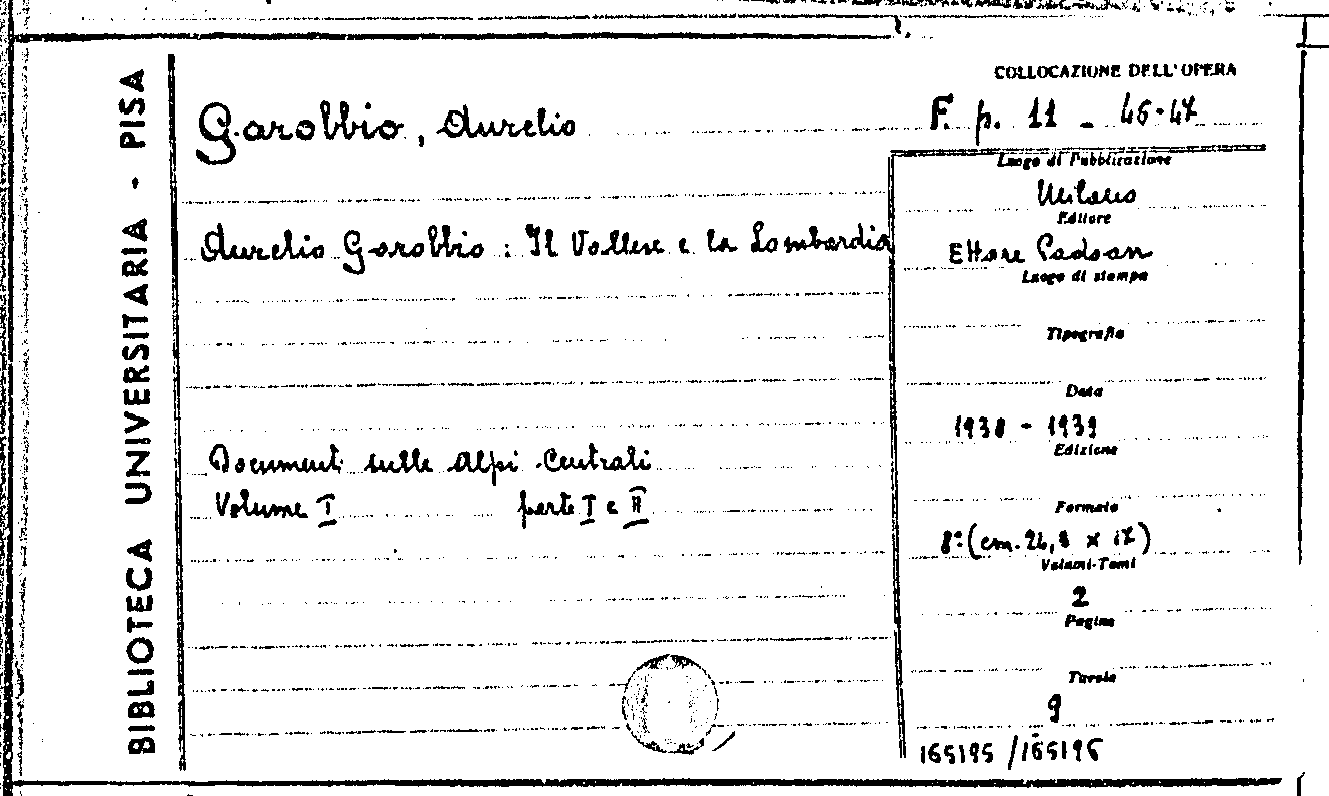 BIBLIOTECA UNIVERSITARIA - PISA
COLLOCAZIONE DELL'OPERA
Garobbio, Aurelio
F. p. 11 - 46-47
Luogo di Pubblicazione
Milano
Editore
Aurelio Garobbio : Il Vallese e la Lombardia
Ettore Padoan
Luogo di stampa
Tipografia
Data
1938 - 1939
Edizione
Documenti sulle Alpi Centrali
Volume I parte I e II
Formato
8° (cm. 24,8 x 17)
Volumi-Tomi
2
Pagine
Tavole
9
165195 / 165196